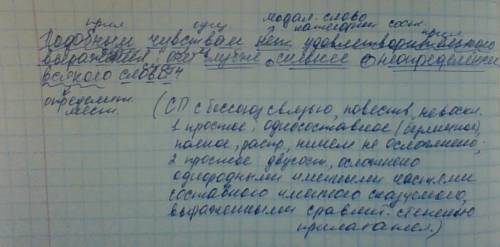 прил. сущ. модал. слово
категории сост. прил.
Подобным чувствам нет удовлетворительного
выражения: они глубже, сильнее и неопределеннее
всякого слова.
определит.
мест.
(СП с бессоюз. связью, повеств., невоскл.
1 простое: односоставное (безличное),
полное, распр., ничем не осложнено,
2 простое двусост., осложнено
однородными именными частями
составного именного сказуемого,
выраженными сравнит. степенью
прилагател.)